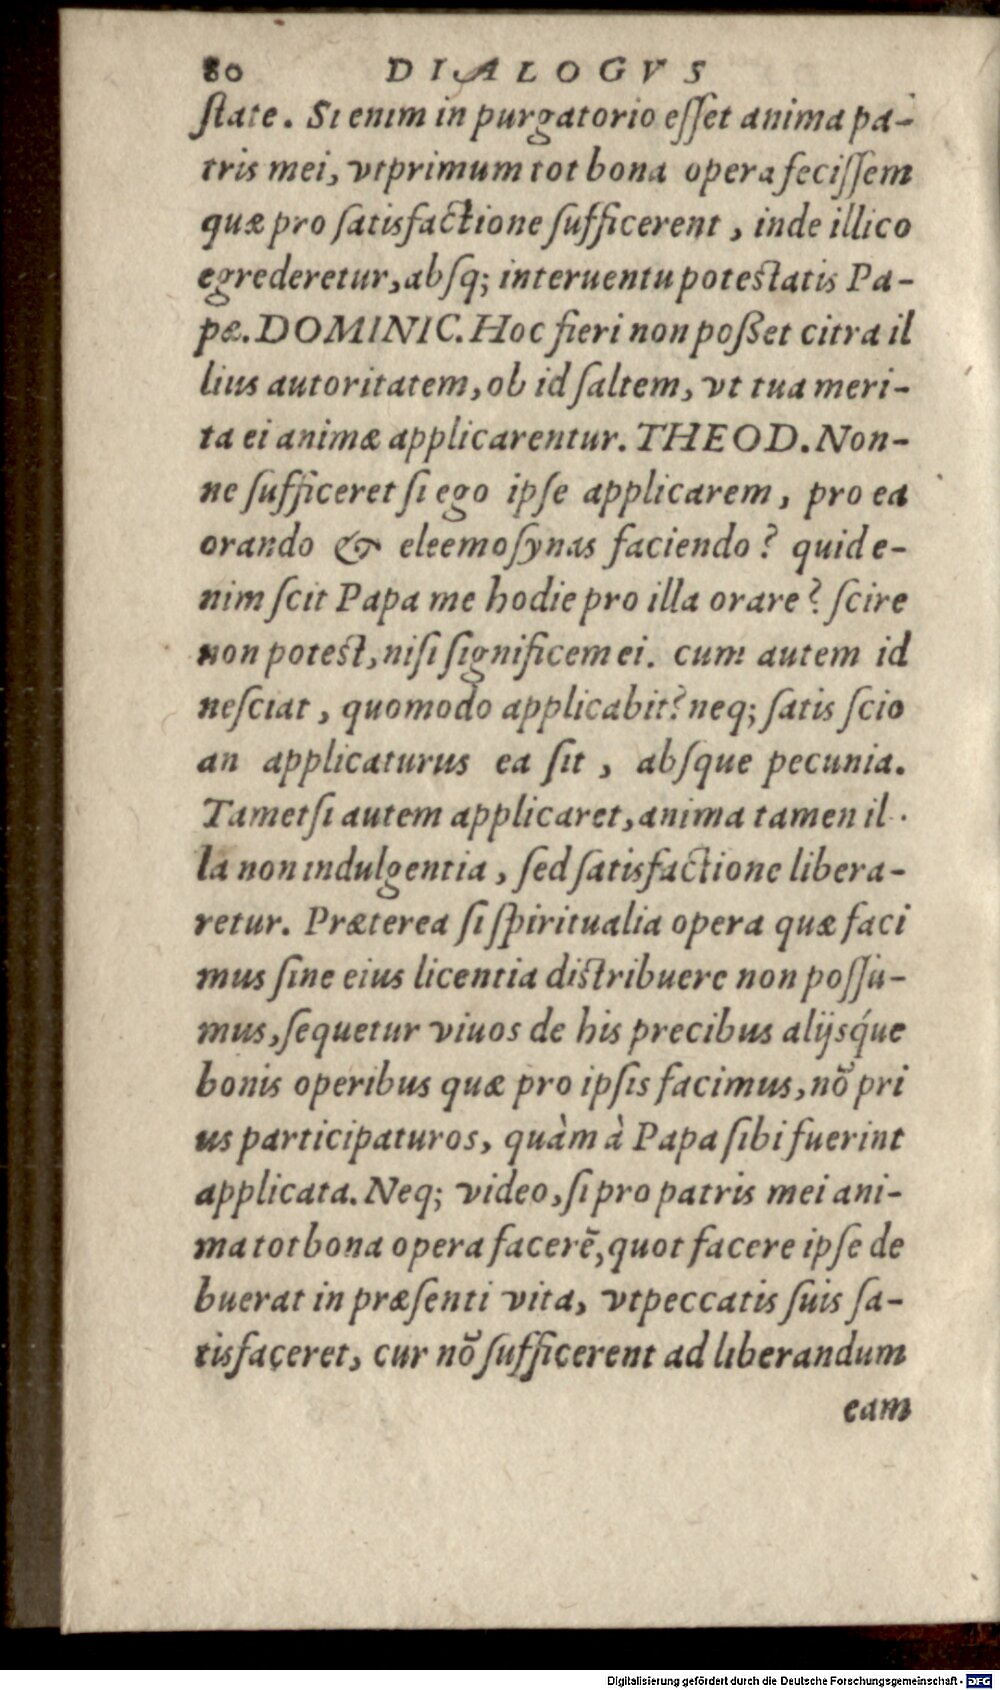 80 DIALOGVS
ſtate. Si enim in purgatorio eſſet anima pa-
tris mei, vtprimum tot bona opera feciſſem
quæ pro ſatisfactione ſufficerent, inde illico
egrederetur, abſq; interuentu poteſtatis Pa-
pæ. DOMINIC. Hoc fieri non poßet citra il
lius autoritatem, ob id ſaltem, vt tua meri-
ta ei animæ applicarentur. THEOD. Non-
ne ſufficeret ſi ego ipſe applicarem, pro ea
orando & eleemoſynas faciendo? quid e-
nim ſcit Papa me hodie pro illa orare? ſcire
non poteſt, niſi ſignificem ei. cum autem id
neſciat, quomodo applicabit? neq; ſatis ſcio
an applicaturus ea ſit, abſque pecunia.
Tametſi autem applicaret, anima tamen il-
la non indulgentia, ſed ſatisfactione libera-
retur. Præterea ſi ſpiritualia opera quæ faci
mus ſine eius licentia diſtribuere non poſſu-
mus, ſequetur viuos de his precibus alijsq́ue
bonis operibus quæ pro ipſis facimus, nõ pri
us participaturos, quàm à Papa ſibi fuerint
applicata. Neq; video, ſi pro patris mei ani-
ma tot bona opera facerē, quot facere ipſe de
buerat in præſenti vita, vt peccatis ſuis ſa-
tisfaceret, cur nõ ſufficerent ad liberandum
eam
Digitalisierung gefördert durch die Deutsche Forschungsgemeinschaft - DFG